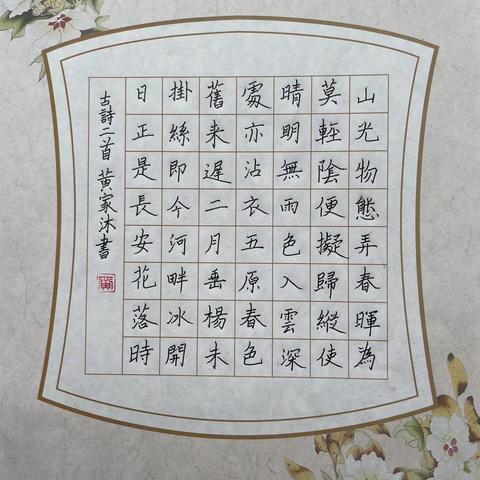 山光物態弄春暉為
莫輕陰便擬歸縱使
晴明無雨色入雲深
處亦沾衣五原春色
舊来遲二月垂楊未
掛絲即今河畔冰開
日正是長安花落時
古詩二首 黄家沐書